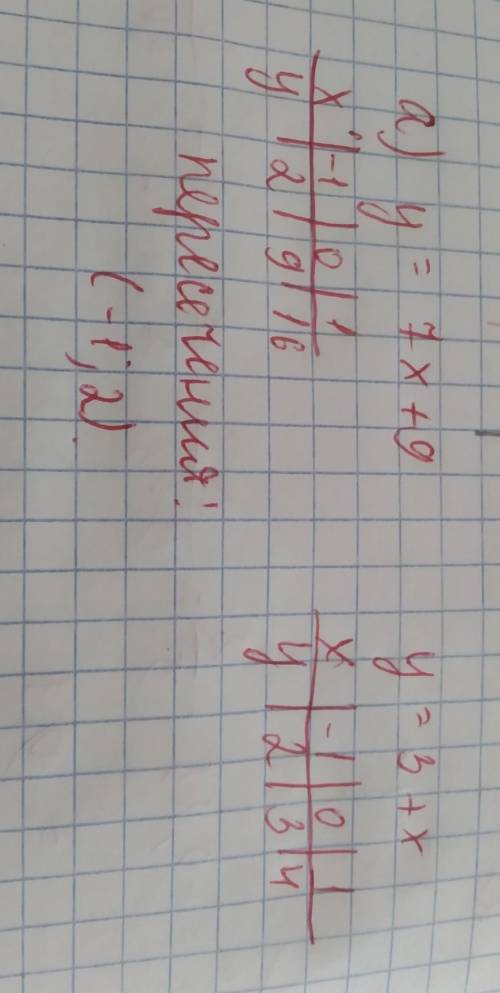 а) y = 7x+9 y = 3+x
x -1 0 1 x -1 0 1
y 2 9 16 y 2 3 4
пересечения:
(-1; 2)